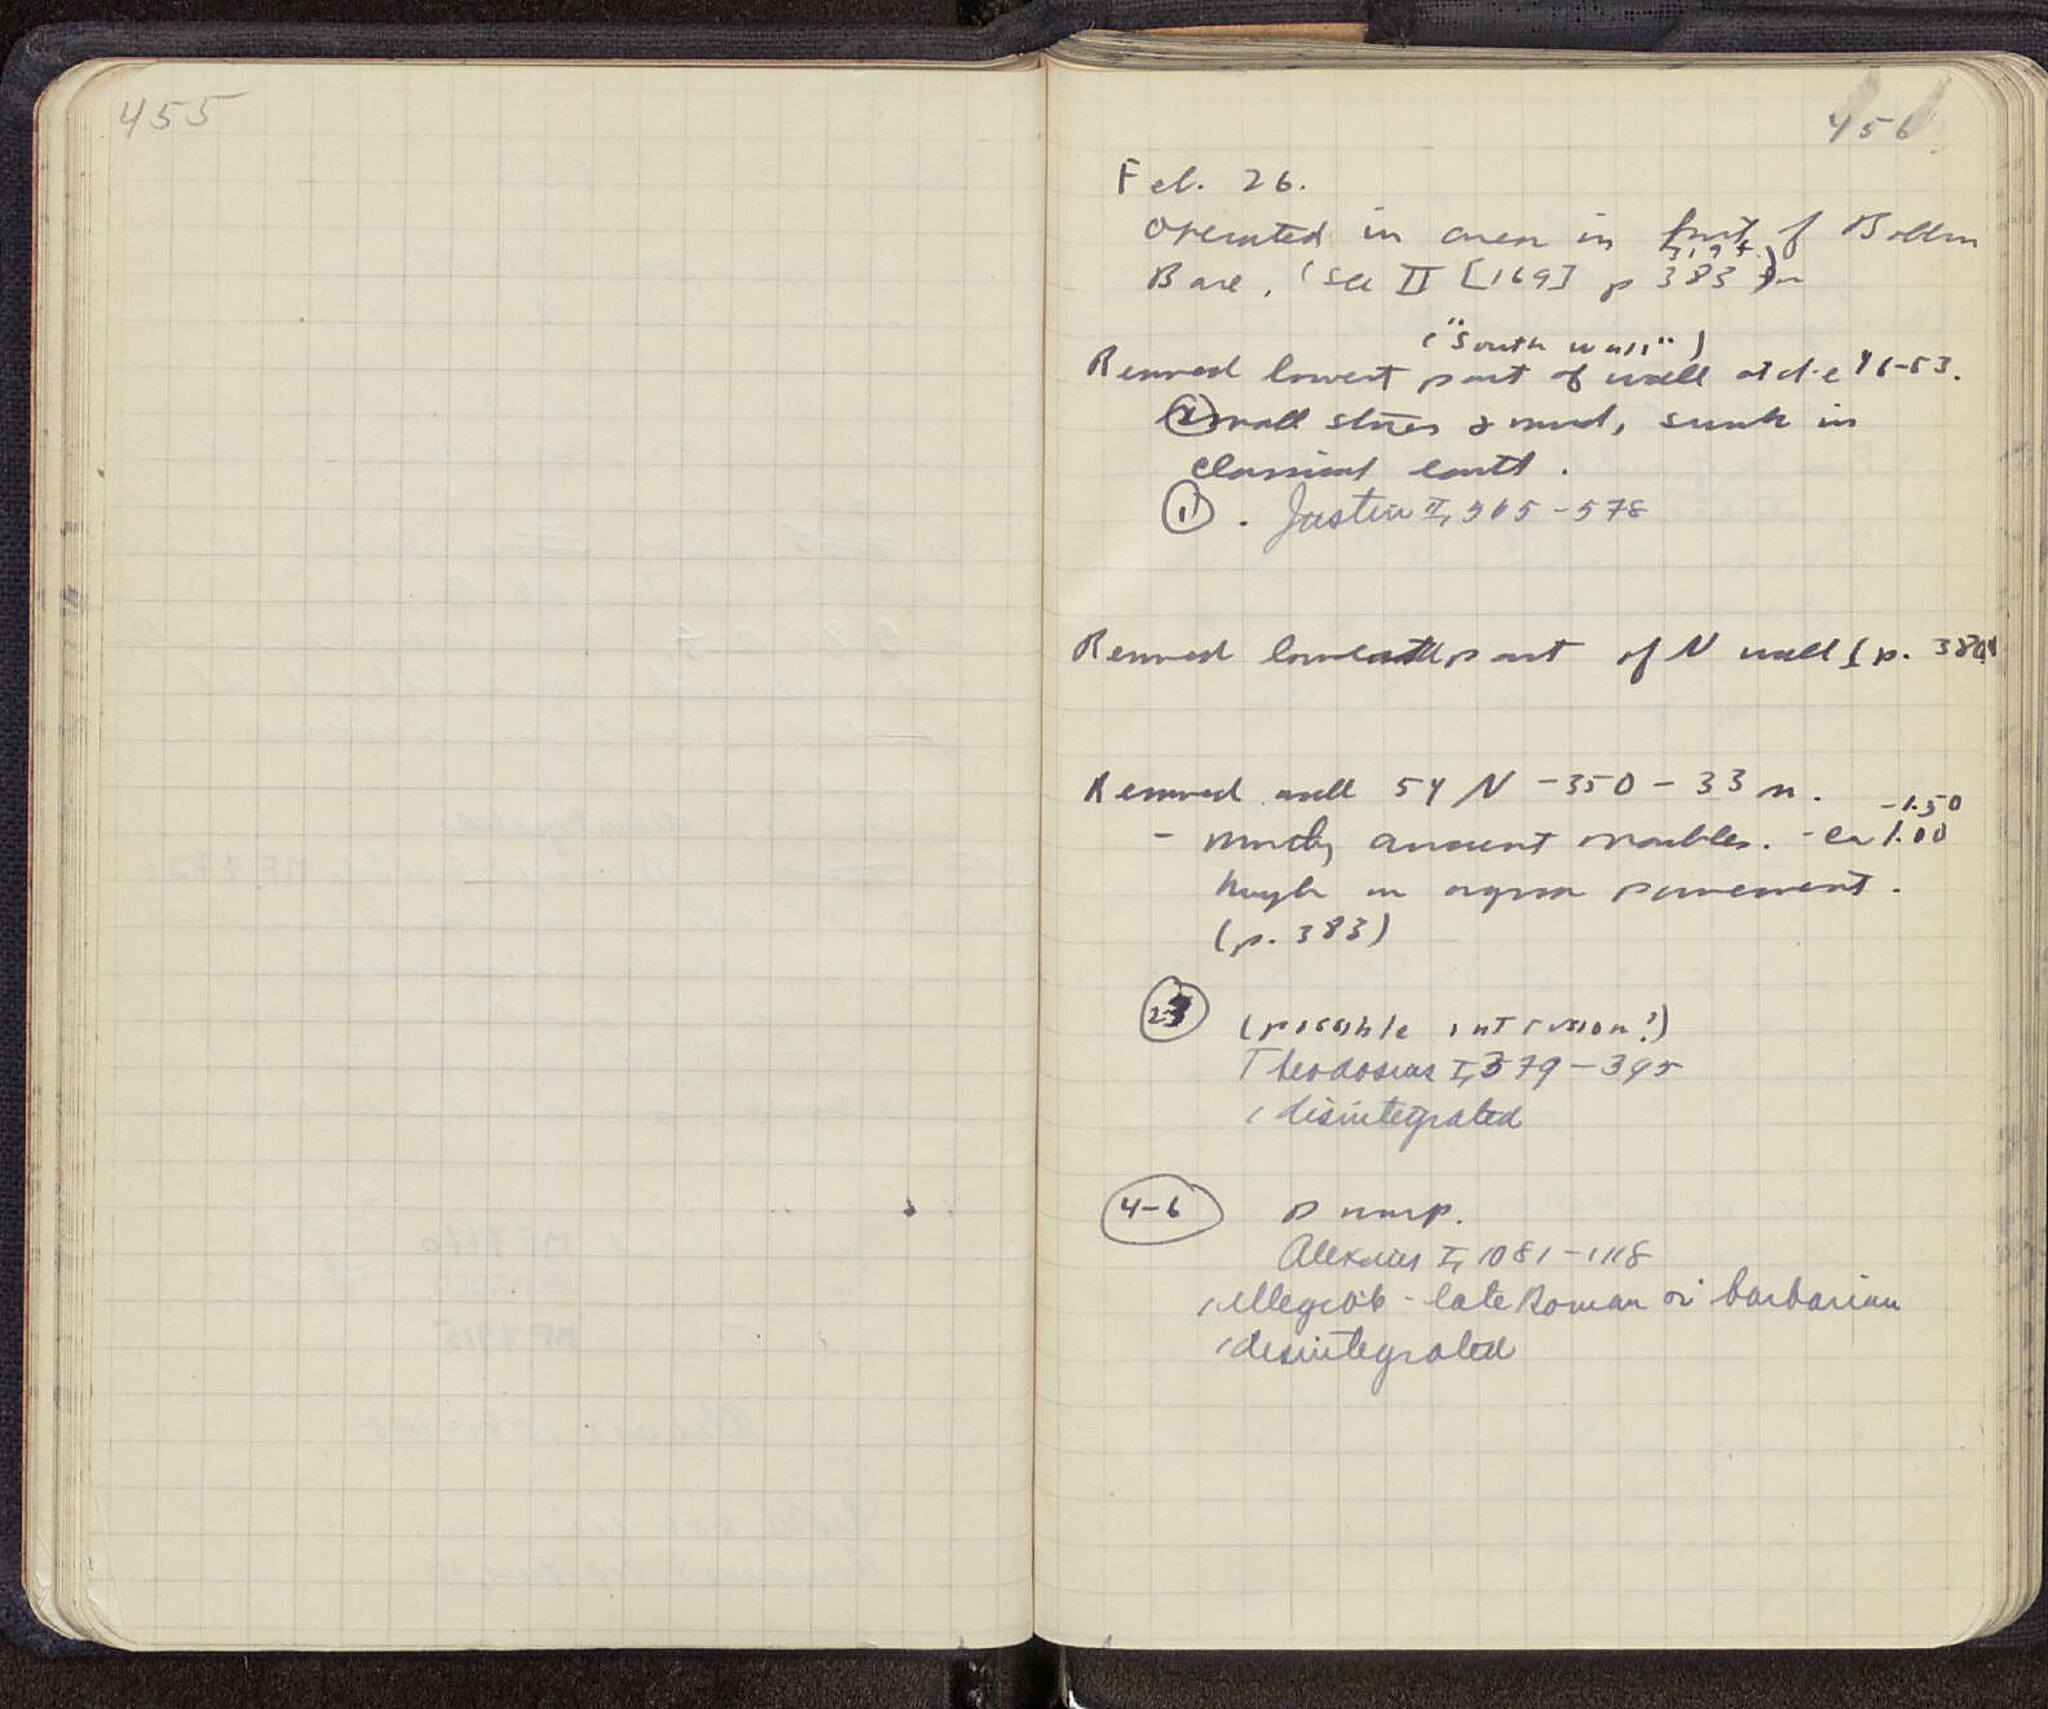 455
456
Feb. 26.
Operated in area in front of Bollm
Base, (see II [169] p 383
319 f.)
("South wall")
Removed lowest part of wall at 46-53.
small stones & mud, sunk in
classical earth.
1 . Justin II, 565-578
Removed lower part of N wall (p. 380
Removed wall 54 N - 350 - 33 m.
- mostly ancient marbles. - ca 1.00
-1.50
high on agora pavement.
(p. 383)
2-3 (possible intrusion?)
Theodosius I, 379-395
1 disintegrated
4-6
Alexius I, 1081-1118
1 illegible - late Roman or barbarian
1 disintegrated